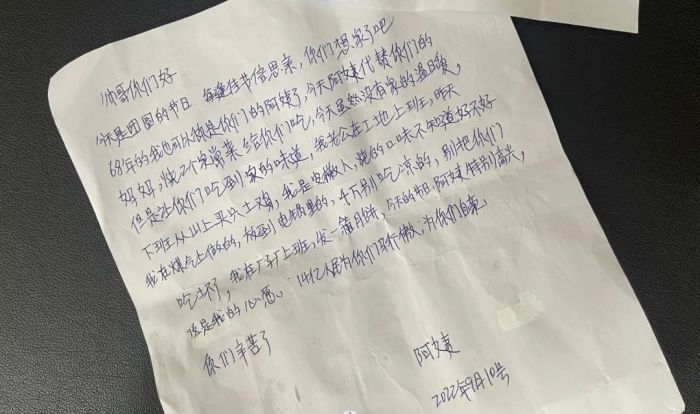 帅哥你们好
今天是团圆的节日 每逢佳节倍思亲，你们想家了吧
68年的我也可以做是你们的阿姨了，今天阿姨代替你们的
妈妈，烧几个家常菜给你们吃，今天虽然没有家的温暖，
但是让你们吃到家的味道，我老公在工地上班，昨天
下班从山上买只土鸡，我是安徽人，烧的口味不知道好不好
我在煤气上做的，放到电锅里的，千万别吃凉的，别把你们
吃坏了，我在厂上班，发一篇月饼，今天的节日阿姨特别高兴，
这是我的心愿，14亿人民为你们骄傲；为你们自豪，
你们辛苦了
阿姨
2022年9月10号